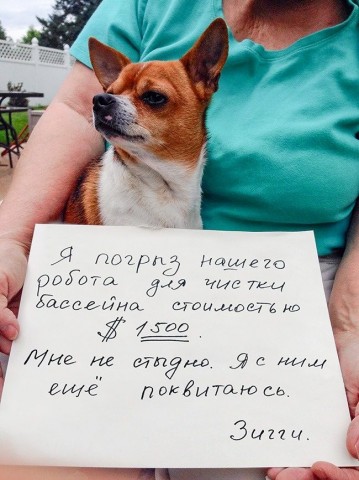 Я погрыз нашего
робота для чистки
бассейна стоимостью
$ 1500.
Мне не стыдно. Я с ним
ещё поквитаюсь.
Зигги.